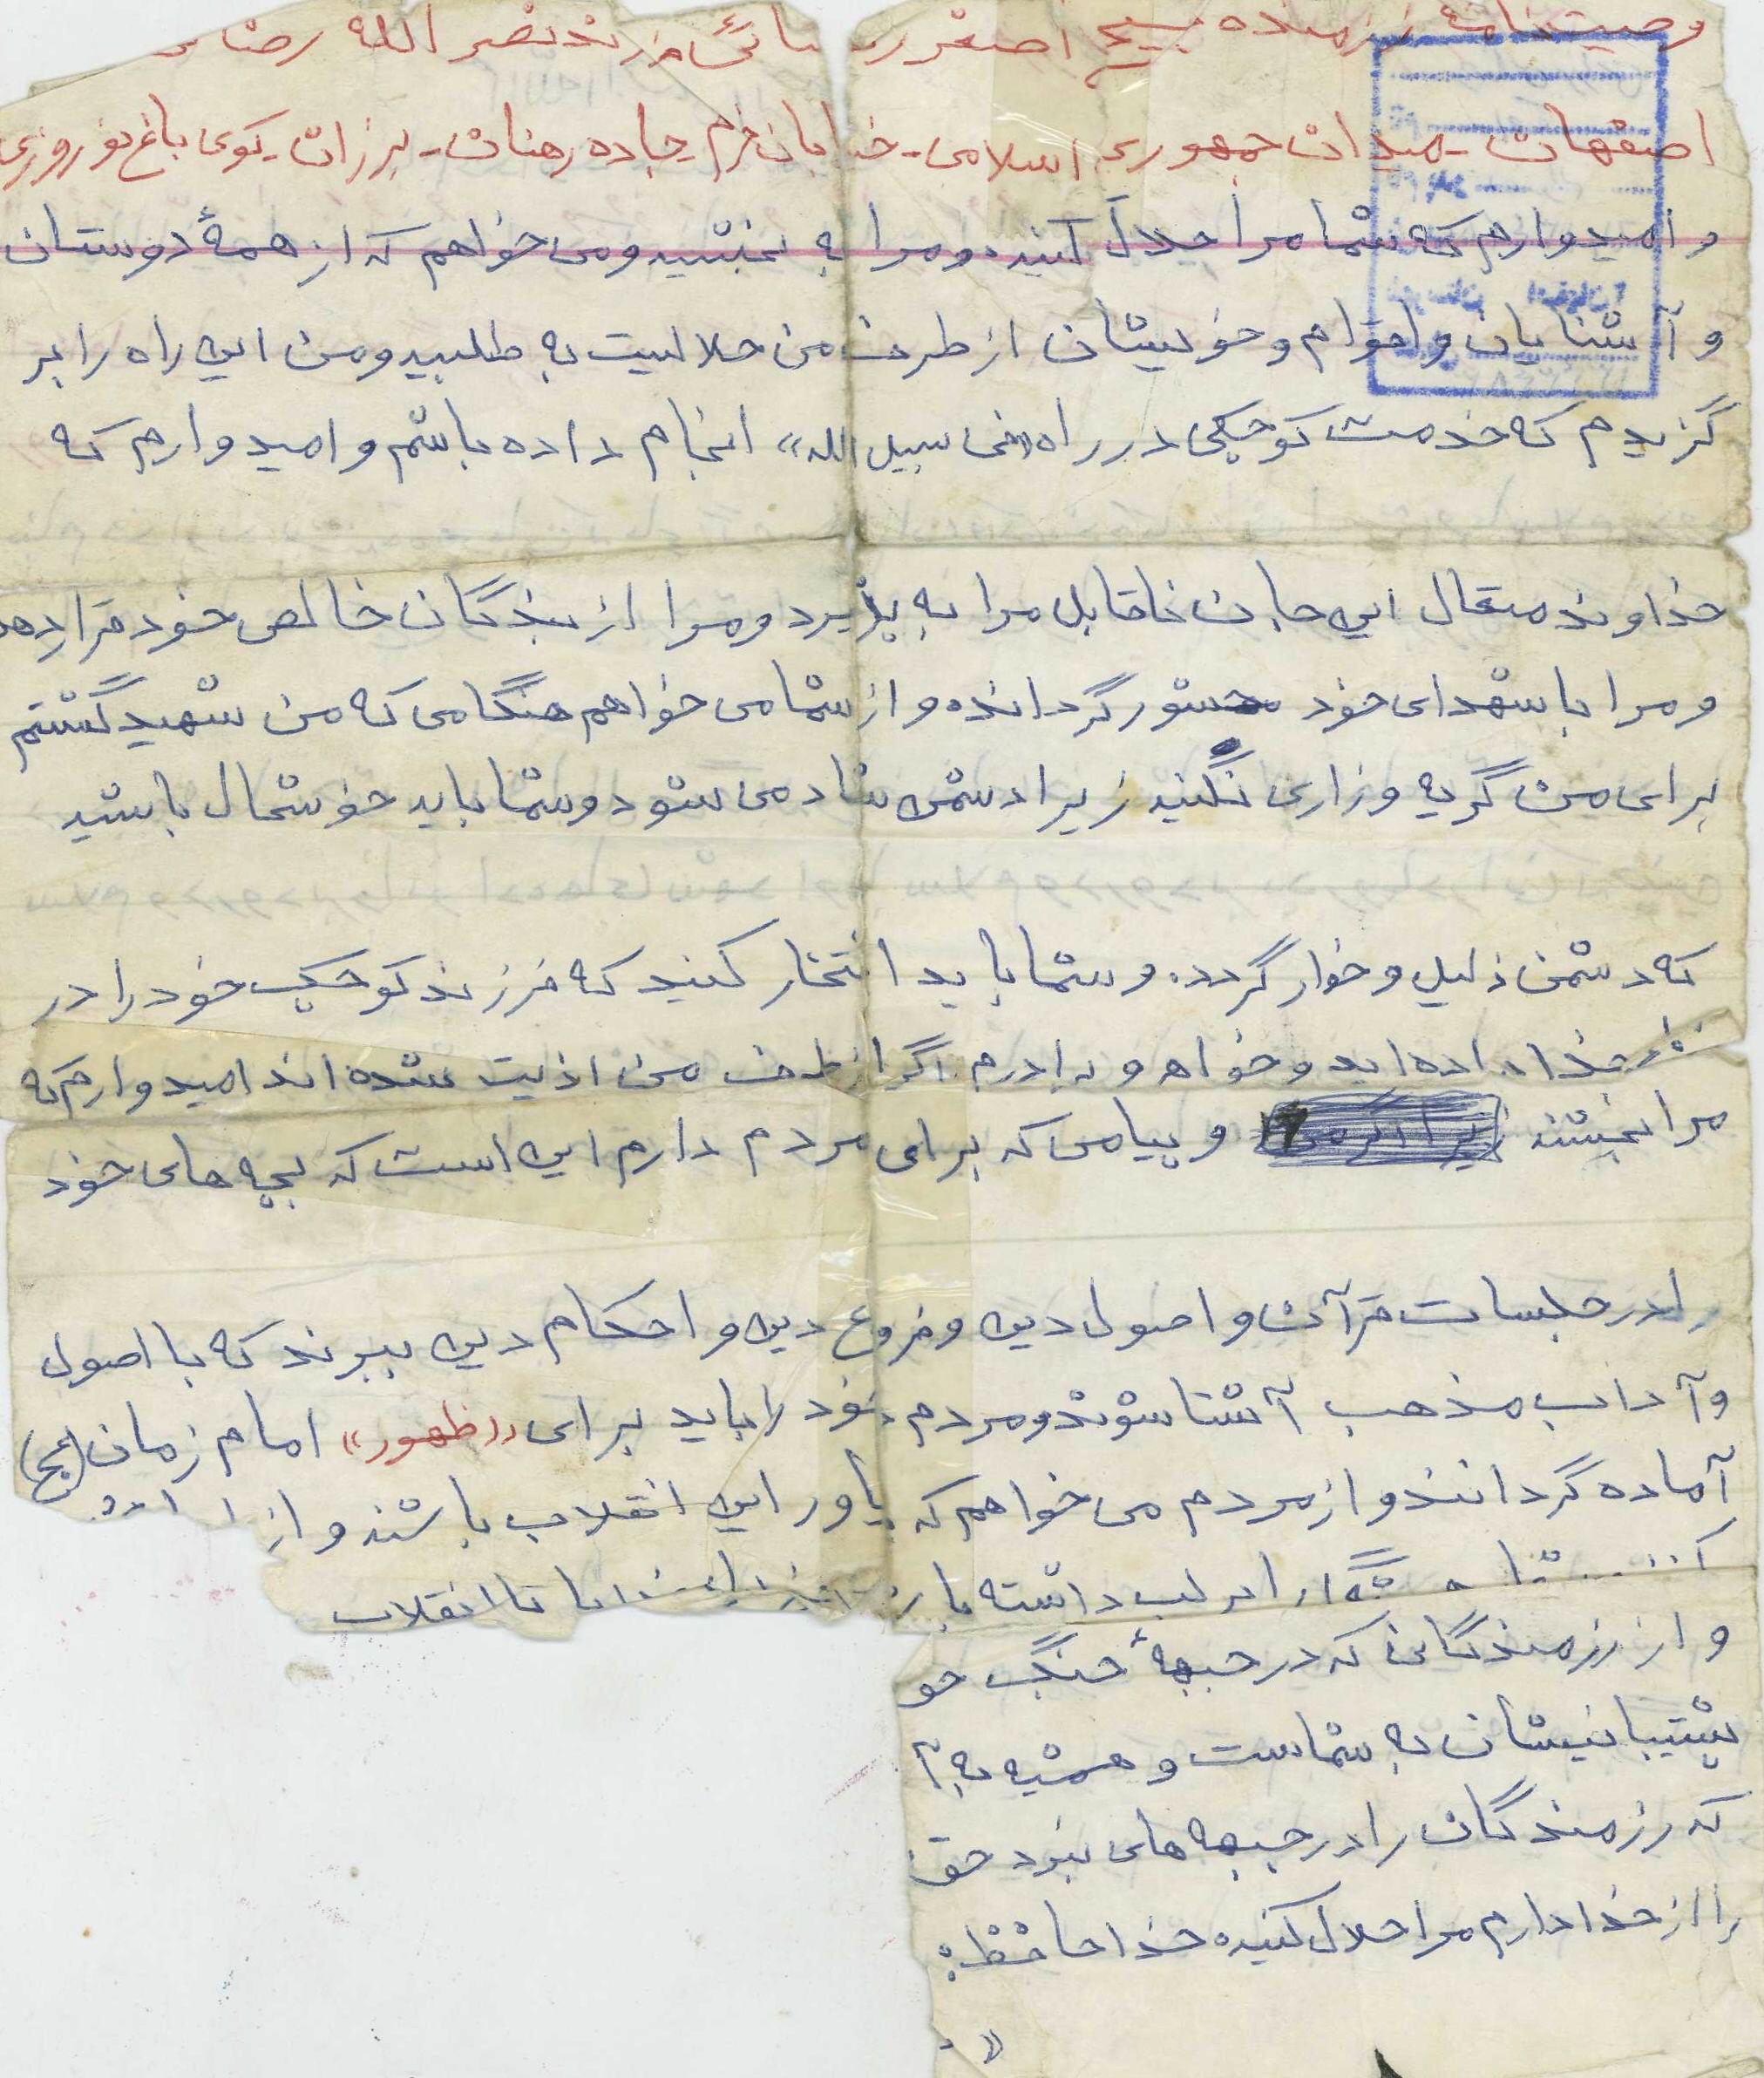 وصیت نامه رزمنده بسیج اصغر رضائی فرزند نصر الله رضا
اصفهان - میدان جمهوری اسلامی - خیابان خرم - جاده رهنان - برزان - کوی باغ نوروزی
و امیدوارم که شما مرا حلال کنید. و مرا به بخشید و می خواهم که از همهٔ دوستان
و آشنایان و اقوام و خویشان از طرف من حلالیت به طلبید و من این راه را بر
گزیدم که خدمت کوچکی در راه «فی سبیل الله» انجام داده باشم و امیدوارم که
خداوند متعال این جان ناقابل مرا به پذیرد و مرا از بندگان خالص خود قرار دهد
و مرا با شهدای خود محشور گرداند. و از شما می خواهم هنگامی که من شهید گشتم
برای من گریه و زاری نکنید زیرا دشمن شاد می شود و شما باید خوشحال باشید
که دشمن ذلیل و خوار گردد. و شما باید افتخار کنید که فرزند کوچک خود را در
خدا داده اید و خواهر و برادرم اگر از طرف من اذیت شده اند امیدوارم که
مرا بخشند و پیامی که برای مردم دارم این است که بچه های خود
را در جلسات قرآن و اصول دین و فروع دین و احکام دین ببرند که با اصول
و آداب مذهب آشنا شوند و مردم خود را باید برای «ظهور» امام زمان (عج)
آماده گردانند و از مردم می خواهم که یاور این انقلاب باشند و از
را بر لب داشته خدایا خدایا تا انقلاب
و از رزمندگانی که در جبههٔ جنگ
پشتیبانیشان به شماست و همیشه به
که رزمندگان را در جبهه های نبرد حق
را از خدا دارم مرا حلال کنید. خدا حافظ.